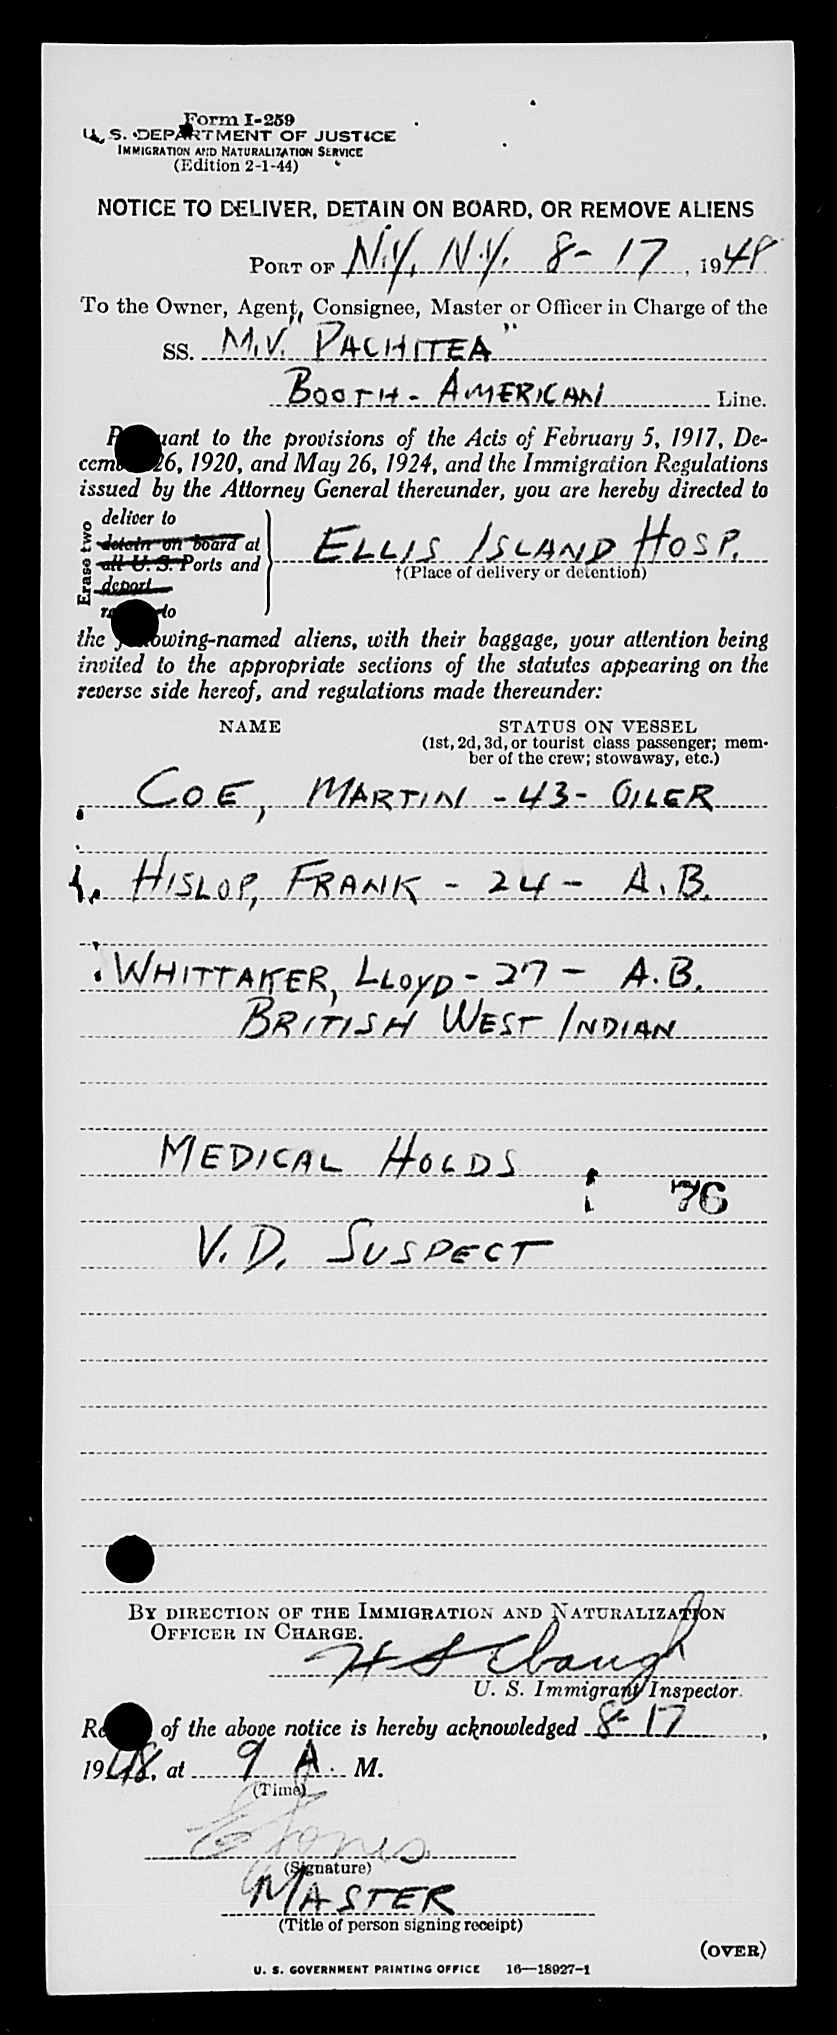 Form I-259
U. S. DEPARTMENT OF JUSTICE
IMMIGRATION AND NATURALIZATION SERVICE
(Edition 2-1-44)
NOTICE TO DELIVER, DETAIN ON BOARD, OR REMOVE ALIENS
PORT OF N.Y., N.Y. 8-17, 1948
To the Owner, Agent, Consignee, Master or Officer in Charge of the
SS. M.V. "PACHITEA"
BOOTH-AMERICAN Line.
Pursuant to the provisions of the Acts of February 5, 1917, De-
cember 26, 1920, and May 26, 1924, and the Immigration Regulations
issued by the Attorney General thereunder, you are hereby directed to
Erase two
deliver to
detain on board at
all U. S. Ports and
deport
remove to
ELLIS ISLAND HOSP.
†(Place of delivery or detention)
the following-named aliens, with their baggage, your attention being
invited to the appropriate sections of the statutes appearing on the
reverse side hereof, and regulations made thereunder:
NAME STATUS ON VESSEL
(1st, 2d, 3d, or tourist class passenger; mem-
ber of the crew; stowaway, etc.)
COE, MARTIN - 43 - OILER
HISLOP, FRANK - 24 - A.B.
WHITTAKER, LLOYD - 27 - A.B.
BRITISH WEST INDIAN
MEDICAL HOLDS
76
V.D. SUSPECT
BY DIRECTION OF THE IMMIGRATION AND NATURALIZATION
OFFICER IN CHARGE.
H S Ebaugh
U. S. Immigrant Inspector.
Receipt of the above notice is hereby acknowledged 8-17,
1948, at 9 A. M.
(Time)
E Jones
(Signature)
MASTER
(Title of person signing receipt)
(OVER)
U. S. GOVERNMENT PRINTING OFFICE 16—18927-1